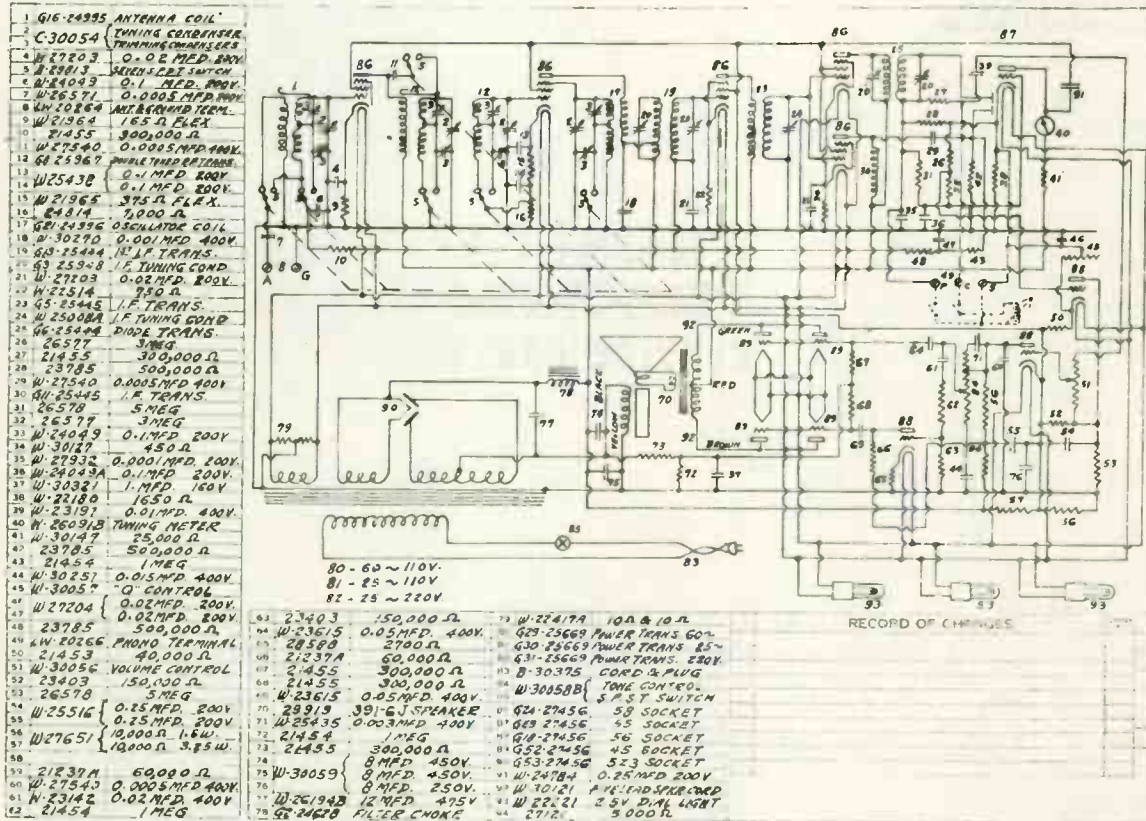 1 G16-24995 ANTENNA COIL
2 C-30054 { TUNING CONDENSER
3 TRIMMING CONDENSERS
4 W-27203 0.02 MFD. 200V
5 B-29813 SWITCH
6 W-24049 0.1 MFD. 200V.
7 W-26571 0.0005 MFD. 200V
8 LW 20264 ANT & GROUND TERM.
9 W 21964 165 Ω FLEX
10 21455 300,000 Ω
11 W 27540 0.0005 MFD. 400V.
12 G8 25967 DOUBLE TUNED RF TRANS.
13 W25438 { 0.1 MFD 200V
14 0.1 MFD 200V.
15 W 21965 375 Ω FLEX.
16 24814 7,000 Ω
17 G21-24996 OSCILLATOR COIL
18 W-30270 0.001 MFD 400V.
19 G13-25444 1ST I.F. TRANS.
20 G9-25948 I.F. TUNING COND
21 W-27203 0.02 MFD. 200V.
22 W-22514 750 Ω
23 G5-25445 I.F. TRANS.
24 W 25008A I.F. TUNING COND
25 G6-25444 DIODE TRANS.
26 26577 3 MEG
27 21455 300,000 Ω
28 23785 500,000 Ω
29 W-27540 0.0005 MFD 400V
30 G11-25445 I.F. TRANS.
31 26578 5 MEG
32 26577 3 MEG
33 W-24049 0.1 MFD 200V
34 W-30127 450 Ω
35 W-27932 0.0001 MFD. 200V.
36 W-24049A 0.1 MFD 200V.
37 W-30321 1. MFD. 160V
38 W-22180 1650 Ω
39 W-23191 0.01 MFD. 400V.
40 W-26091B TUNING METER
41 W-30147 25,000 Ω
42 23785 500,000 Ω
43 21454 1 MEG
44 W-30251 0.015 MFD 400V
45 W-30057 "Q" CONTROL
46 W 27204 { 0.02 MFD. 200V.
47 0.02 MFD. 200V.
48 23785 500,000 Ω
49 LW-20266 PHONO TERMINAL
50 21453 40,000 Ω
51 W-30056 VOLUME CONTROL
52 23403 150,000 Ω
53 26578 5 MEG
54 W-25516 { 0.25 MFD. 200V
55 0.25 MFD. 200V
56 W27651 { 10,000 Ω 1.6 W.
57 10,000 Ω 3.25 W.
58
59 21237A 60,000 Ω
60 W-27540 0.0005 MFD 400V.
61 W-23142 0.02 MFD. 400V
62 21454 1 MEG
63 23403 150,000 Ω
64 W-23615 0.05 MFD. 400V.
65 28588 2700 Ω
66 21237A 60,000 Ω
67 21455 300,000 Ω
68 21455 300,000 Ω
69 W-23615 0.05 MFD. 400V.
70 29919 391-6J SPEAKER
71 W-25435 0.003 MFD 400V
72 21454 1 MEG
73 21455 300,000 Ω
74 8 MFD 450V.
75 W-30059 { 8 MFD. 450V.
76 8 MFD. 250V.
77 W-26194B 12 MFD 475V
78 G2-24628 FILTER CHOKE
79 W-22417A 10 Ω & 10 Ω
80 G29-25669 POWER TRANS 60~
81 G30-25669 POWER TRANS 25~
82 G31-25669 POWER TRANS. 220V.
83 B-30375 CORD & PLUG
84 W-30058B { TONE CONTROL
85 S.P.S.T SWITCH
86 G24-27456 58 SOCKET
87 G29-27456 55 SOCKET
88 G18-27456 56 SOCKET
89 G52-27456 45 SOCKET
90 G53-27456 5Z3 SOCKET
91 W-24784 0.25 MFD 200V
92 W 30121 SPKR CORD
93 W 22221 2.5V DIAL LIGHT
94 27121 5000 Ω
80 - 60 ~ 110V.
81 - 25 ~ 110V
82 - 25 ~ 220V.
GREEN
BLACK
YELLOW
RED
BROWN
RECORD OF CHANGES